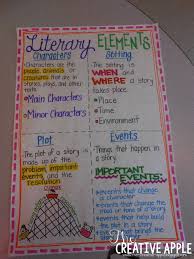 Literary ELEMENTS
Characters
Characters are the
people, animals, or
creatures that are
in stories, plays, and
other texts.
•Main Characters
•Minor Characters
Setting
The setting is
WHEN and
WHERE a story
takes place.
•Place
•Time
•Environment
Plot
The plot of a story is
made up of the
problem, important
events, and the
resolution
Events
Things that happen in
a story.
IMPORTANT
EVENTS:
•events that change
a character
•events that change the
mood or tone of a story
•events that help build
the plot in a story
The
CREATIVE APPLE